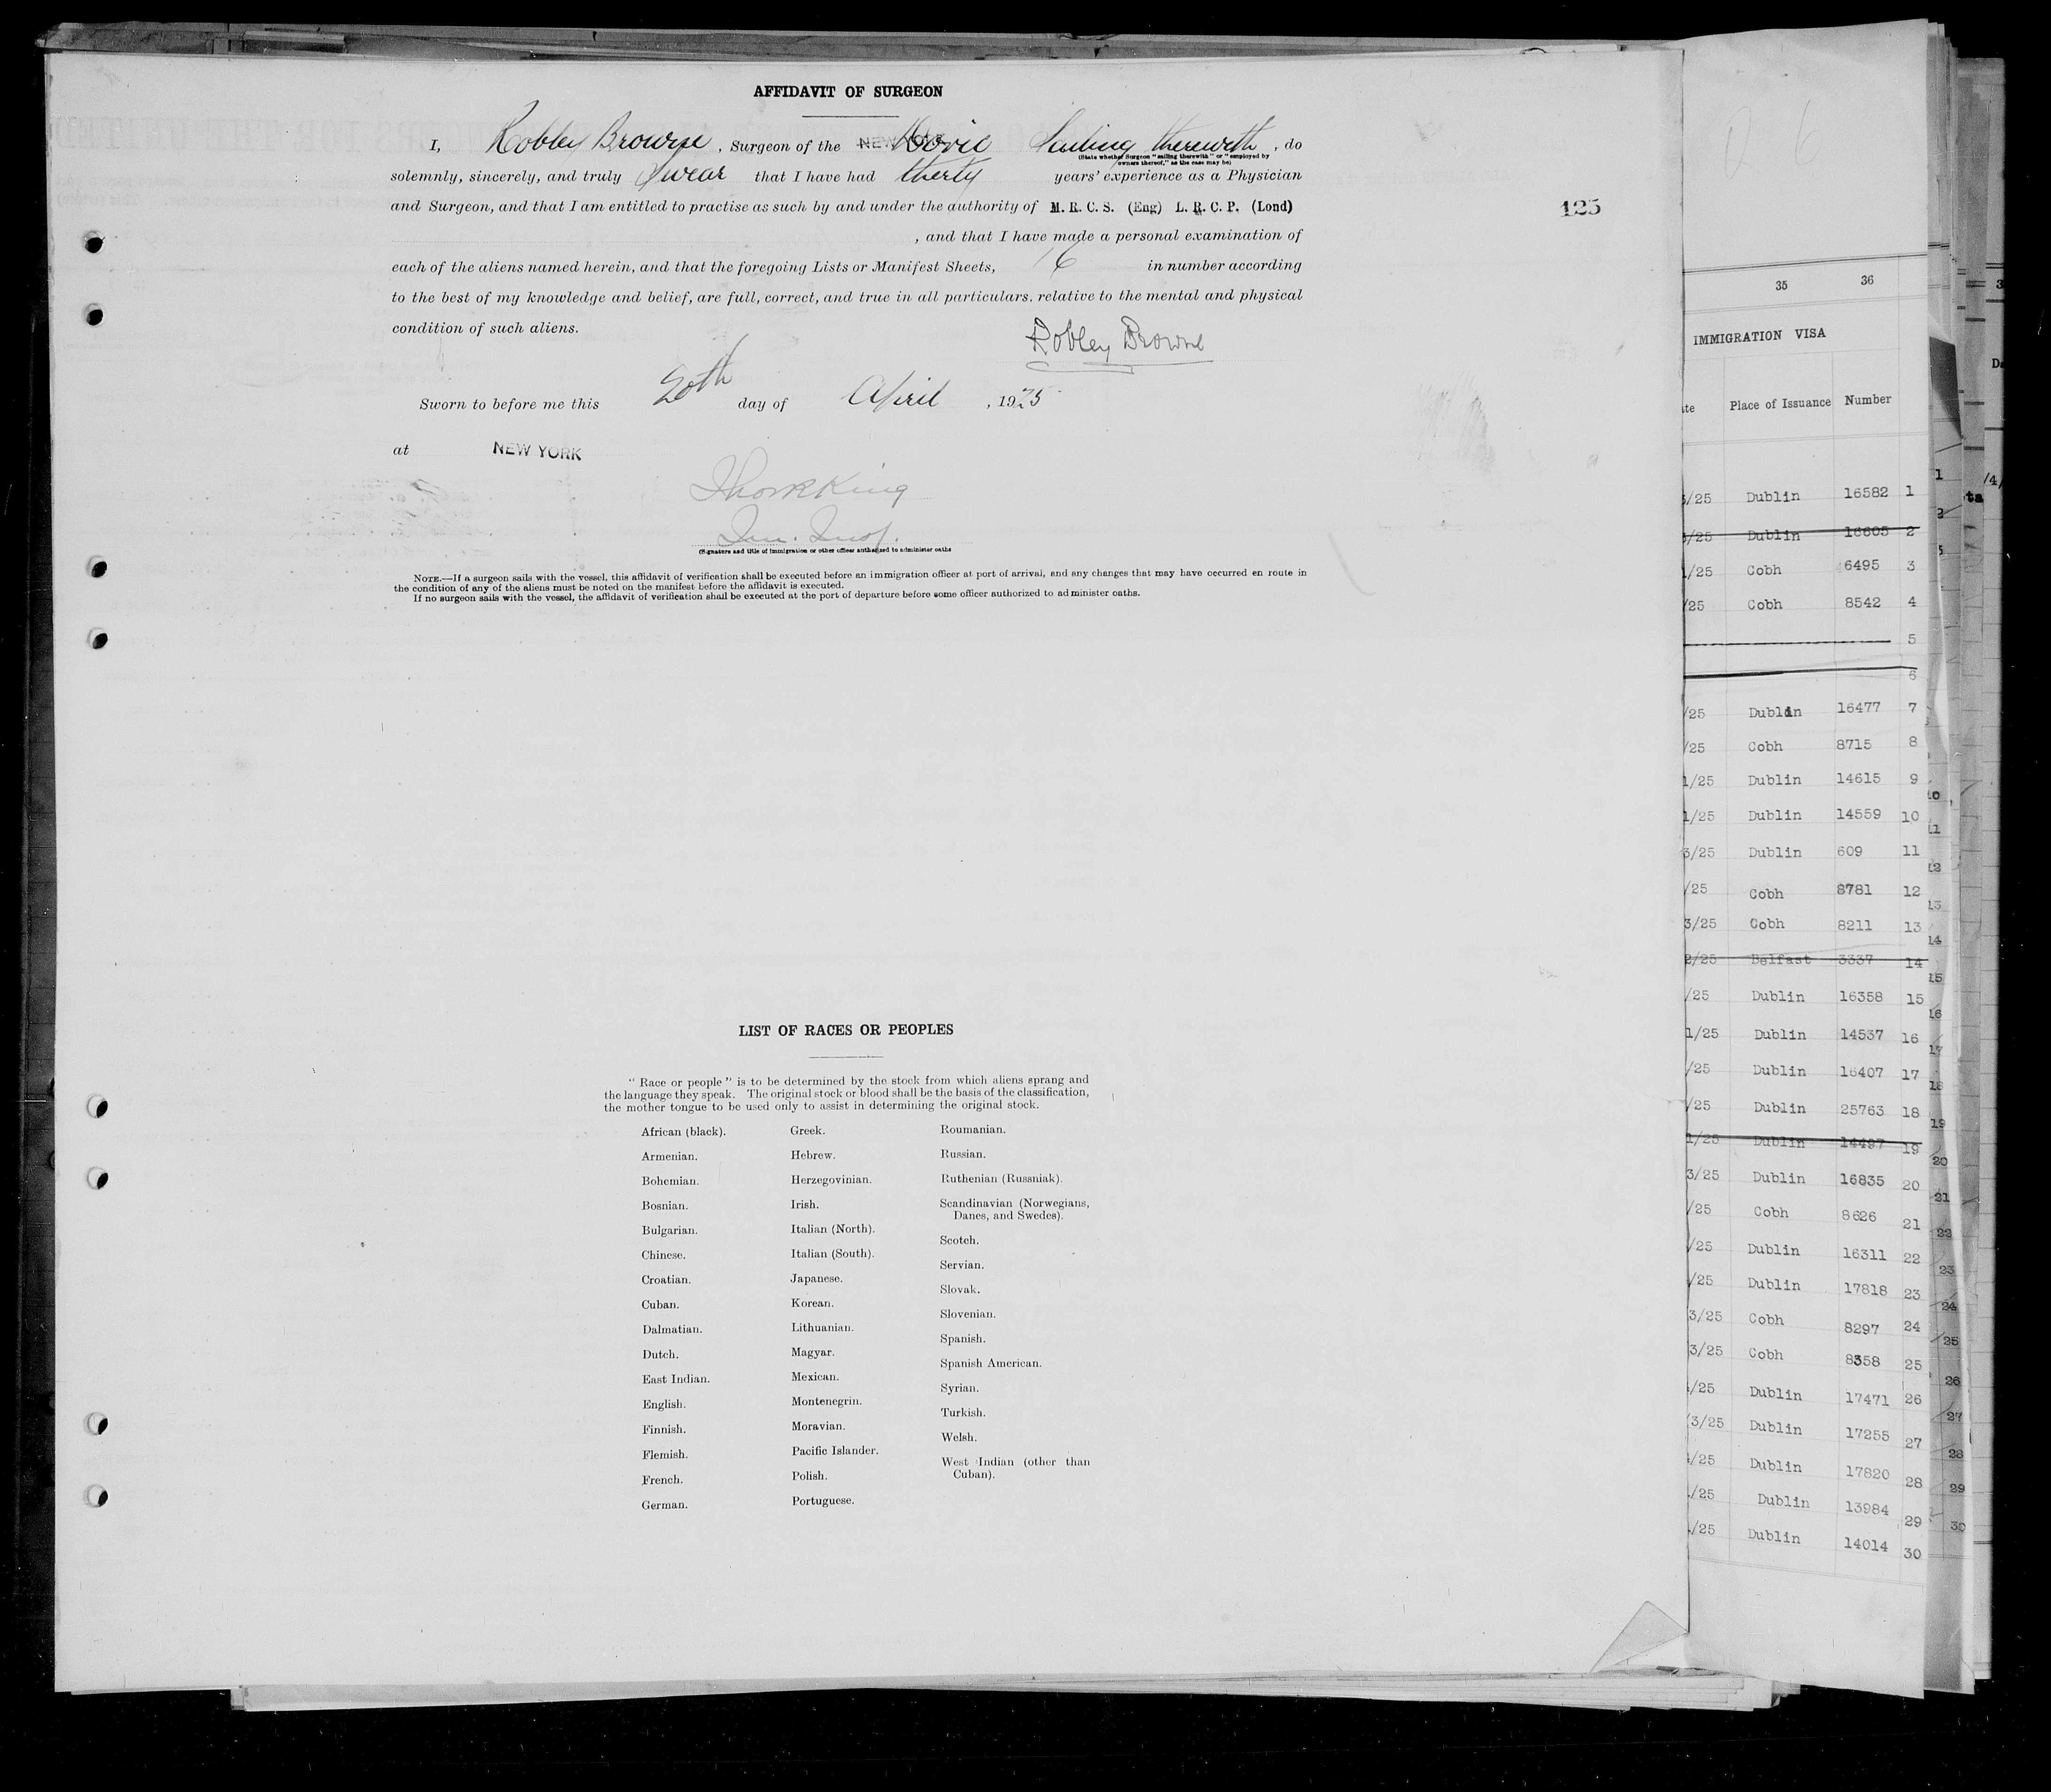 AFFIDAVIT OF SURGEON
I, Robley Browne, Surgeon of the NEW YORK Doric Sailing therewith, do
(State whether Surgeon "sailing therewith" or "employed by
owners thereof," as the case may be)
solemnly, sincerely, and truly Swear that I have had thirty years' experience as a Physician
and Surgeon, and that I am entitled to practise as such by and under the authority of M. R. C. S. (Eng) L. R. C. P. (Lond)
, and that I have made a personal examination of
each of the aliens named herein, and that the foregoing Lists or Manifest Sheets, 16 in number according
to the best of my knowledge and belief, are full, correct, and true in all particulars, relative to the mental and physical
condition of such aliens.
Robley Browne
Sworn to before me this 20th day of April, 1925
at NEW YORK
King
Im. Insp.
(Signature and title of immigration or other officer authorized to administer oaths
NOTE.—If a surgeon sails with the vessel, this affidavit of verification shall be executed before an immigration officer at port of arrival, and any changes that may have occurred en route in
the condition of any of the aliens must be noted on the manifest before the affidavit is executed.
If no surgeon sails with the vessel, the affidavit of verification shall be executed at the port of departure before some officer authorized to administer oaths.
125
LIST OF RACES OR PEOPLES
"Race or people" is to be determined by the stock from which aliens sprang and
the language they speak. The original stock or blood shall be the basis of the classification,
the mother tongue to be used only to assist in determining the original stock.
African (black).
Armenian.
Bohemian.
Bosnian.
Bulgarian.
Chinese.
Croatian.
Cuban.
Dalmatian.
Dutch.
East Indian.
English.
Finnish.
Flemish.
French.
German.
Greek.
Hebrew.
Herzegovinian.
Irish.
Italian (North).
Italian (South).
Japanese.
Korean.
Lithuanian.
Magyar.
Mexican.
Montenegrin.
Moravian.
Pacific Islander.
Polish.
Portuguese.
Roumanian.
Russian.
Ruthenian (Russniak).
Scandinavian (Norwegians,
Danes, and Swedes).
Scotch.
Servian.
Slovak.
Slovenian.
Spanish.
Spanish American.
Syrian.
Turkish.
Welsh.
West Indian (other than
Cuban).
35 36
IMMIGRATION VISA
Place of Issuance Number
/25 Dublin 16582 1
/25 Dublin 16605 2
/25 Cobh 6495 3
/25 Cobh 8542 4
5
6
/25 Dublin 16477 7
/25 Cobh 8715 8
1/25 Dublin 14615 9
1/25 Dublin 14559 10
3/25 Dublin 609 11
/25 Cobh 8781 12
3/25 Cobh 8211 13
2/25 Belfast 3337 14
/25 Dublin 16358 15
1/25 Dublin 14537 16
/25 Dublin 16407 17
/25 Dublin 25763 18
1/25 Dublin 14497 19
3/25 Dublin 16835 20
/25 Cobh 8626 21
/25 Dublin 16311 22
/25 Dublin 17818 23
3/25 Cobh 8297 24
3/25 Cobh 8358 25
/25 Dublin 17471 26
/3/25 Dublin 17255 27
/25 Dublin 17820 28
/25 Dublin 13984 29
/25 Dublin 14014 30